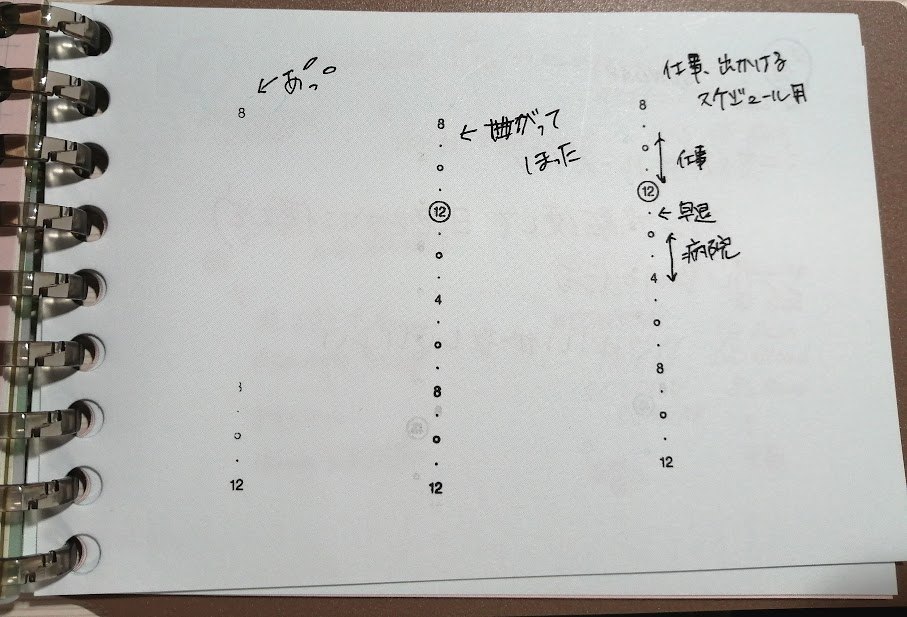 ←あっ。
8
12
8
←曲がって
ほった
12
4
8
12
仕事、出かける
スケジュール用
8
仕事
12
←早退
病院
4
8
12